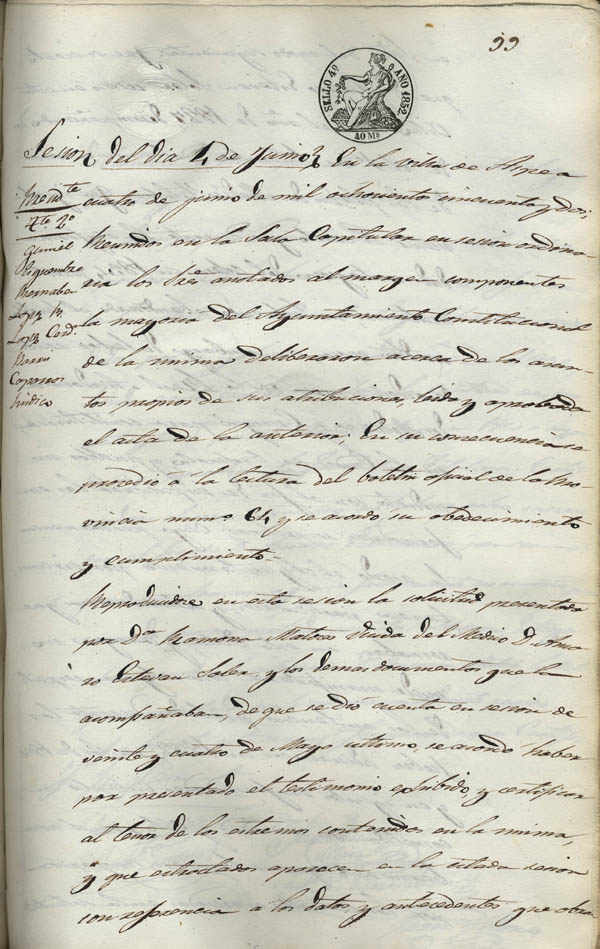 99
SELLO 4º AÑO 1852
40 Ms
Sesion del dia 4 de Junio En la villa de Aspe a
cuatro de junio de mil ochocientos cincuenta y dos;
Reunidos en la Sala Capitular en sesion ordina-
ria los Sres anotados al margen componentes
la mayoria del Ayuntamiento Constitucional
de la misma deliberaron acerca de los asun-
tos propios de sus atribuciones, leida y aprobada
el acta de la anterior. En su consecuencia se
procedio á la lectura del boletin oficial de la Pro-
vincia num. 64 y se acordo su obedecimiento
y cumplimiento-
Reproducidose en esta sesion la solicitud presentada
por Da. Ramona Viuda del Medico D. Ama-
ro Estevan Soler, y los demas documentos que la
acompañaban, de que se dió cuenta en sesion de
veinte y cuatro de Mayo ultimo, se acordo haber
por presentado el testimonio exhibido, y certificar
al tenor de los estremos contenidos en la misma,
y que estractados aparecen en la citada sesion
con referencia a los datos, y antecedentes que obran
Presidte
4te. 2º
Bernabeu
Lopez
Lopez Cerdn.
Caparros
Sindico